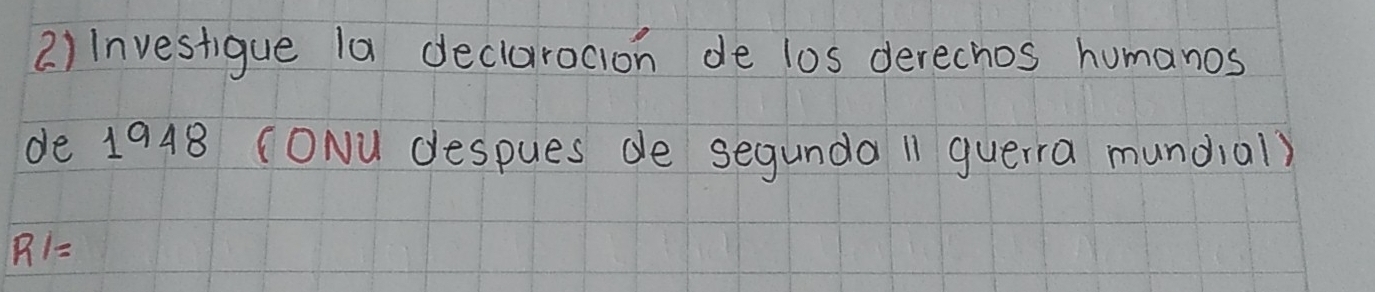 2) Investigue la declaración de los derechos humanos
de 1948 (ONU despues de segunda II guerra mundial)
R/=